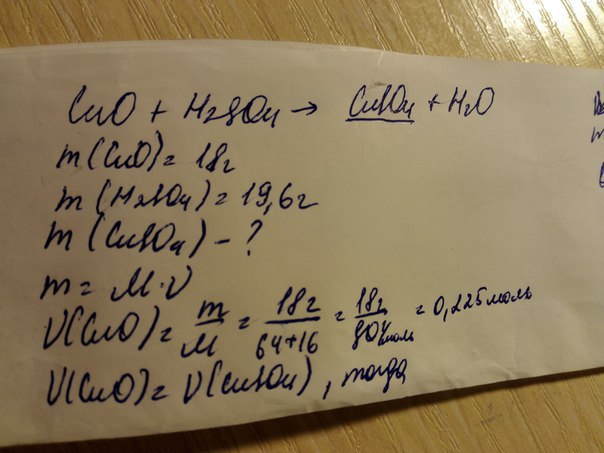 CuO + H2SO4 → CuSO4 + H2O
m(CuO) = 18г
m(H2SO4) = 19,6г
m(CuSO4) - ?
m = M·ν
ν(CuO) = m/M = 18г/64+16 = 18г/80г/моль = 0,225моль
ν(CuO) = ν(CuSO4), тогда